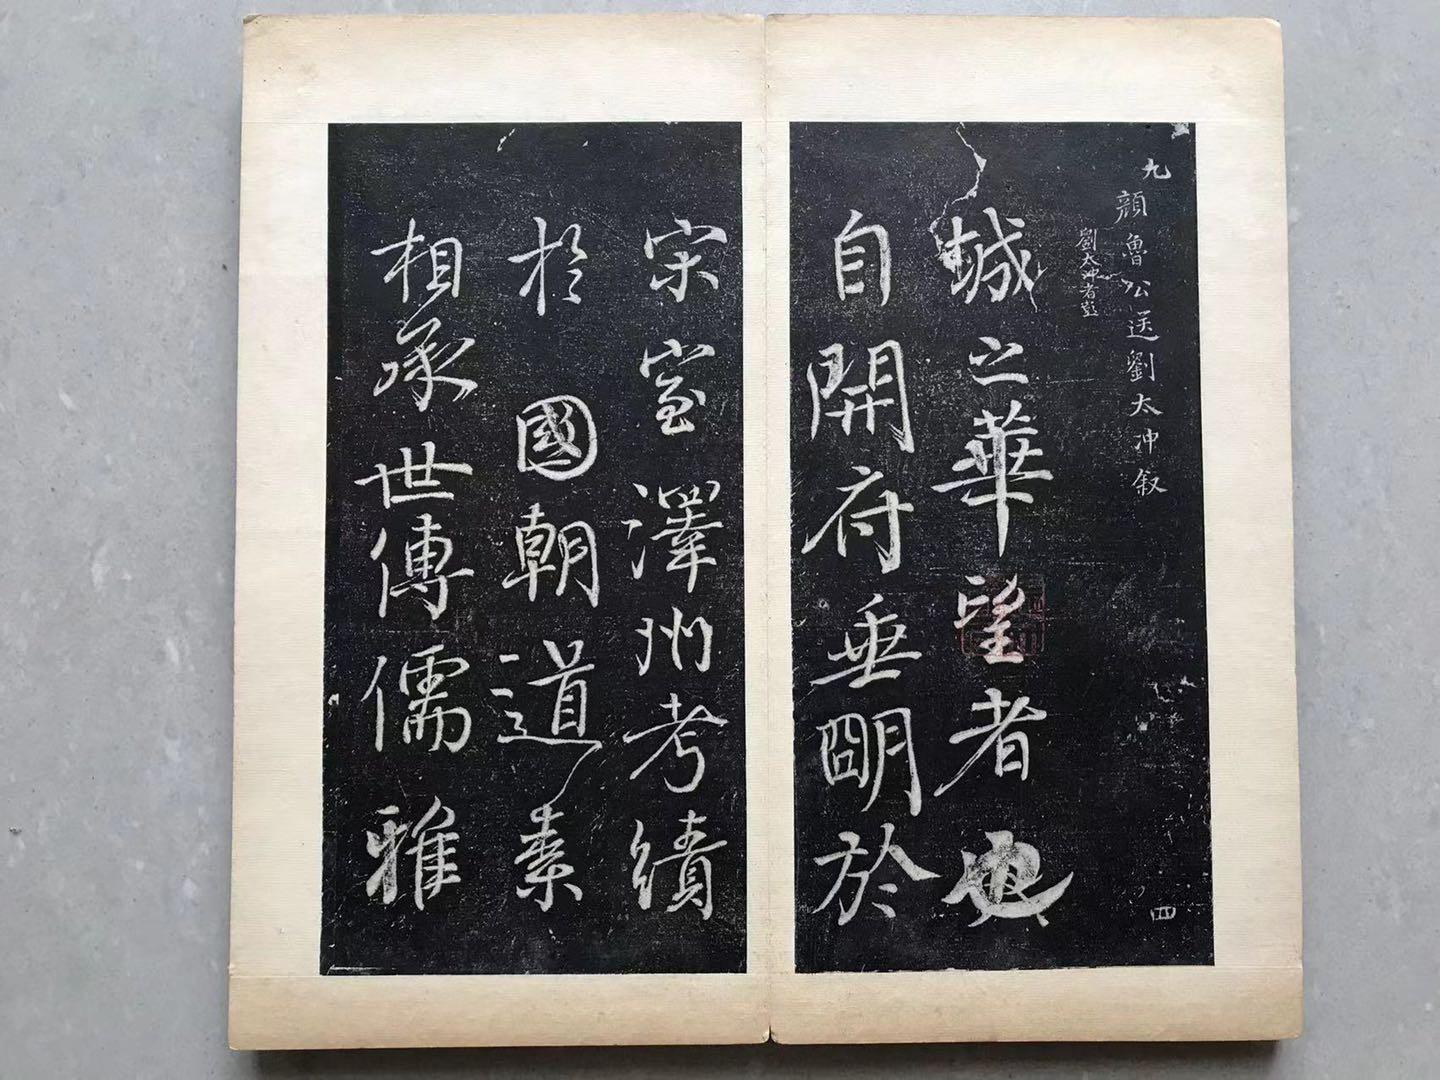 九 顏魯公送劉太冲叙
劉太冲者彭
城之華望者也
自開府垂明於
宋室澤州考績
於國朝道素
相承世傳儒雅
四